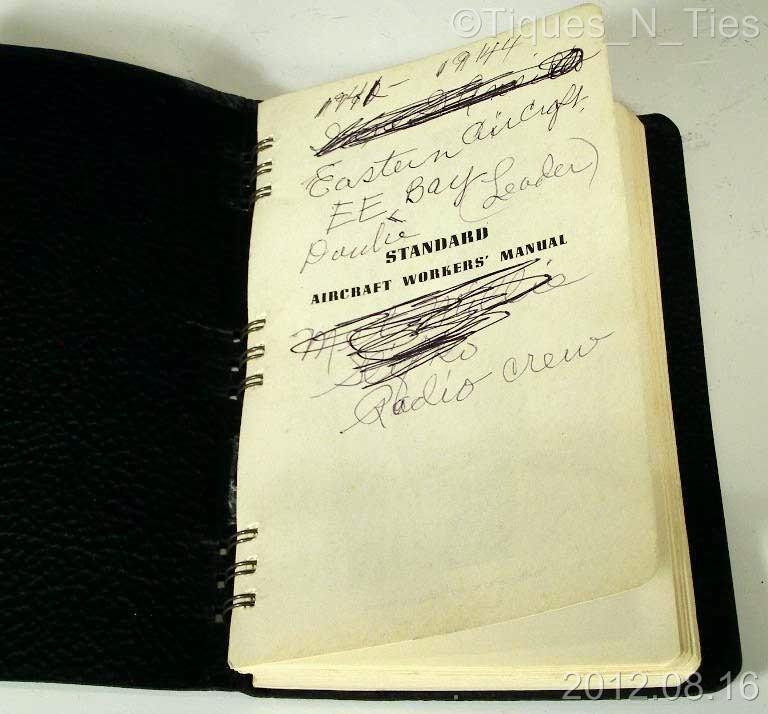 ©Tiques_N_Ties
1942 - 1944
Eastern Aircraft.
EE Bay (Leader)
STANDARD
AIRCRAFT WORKERS' MANUAL
Radio crew
2012.08.16